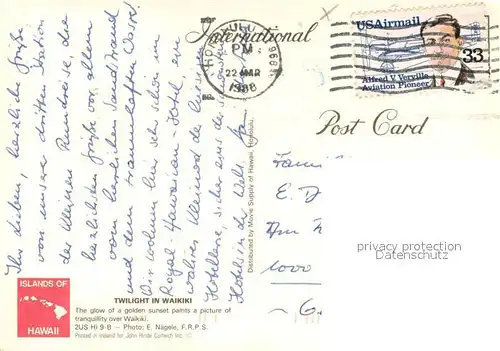 Ihr Lieben, herzliche Grüße
von unserer dritten Station
der kleinen Rundreise, die
herzlichsten Grüße vor allem
vom herrlichen Sandstrand
und dem traumhaften Wasser!
Wir wohnen hier sehr schön im
Royal-Hawaiian Hotel, ein
wahres Kleinod der
Hotellerie, sicher eins der schönsten
Hotels in der Welt.
International
HONOLULU
PM
22 MAR
1988
USAirmail
33
Alfred V. Verville
Aviation Pioneer
Post Card
Distributed by Movie Supply of Hawaii, Honolulu.
E. D
1000
privacy protection
Datenschutz
ISLANDS OF
HAWAII
TWILIGHT IN WAIKIKI
The glow of a golden sunset paints a picture of
tranquillity over Waikiki.
2US HI 9-B — Photo: E. Nägele, F.R.P.S.
Printed in Ireland for John Hinde Curteich Inc.